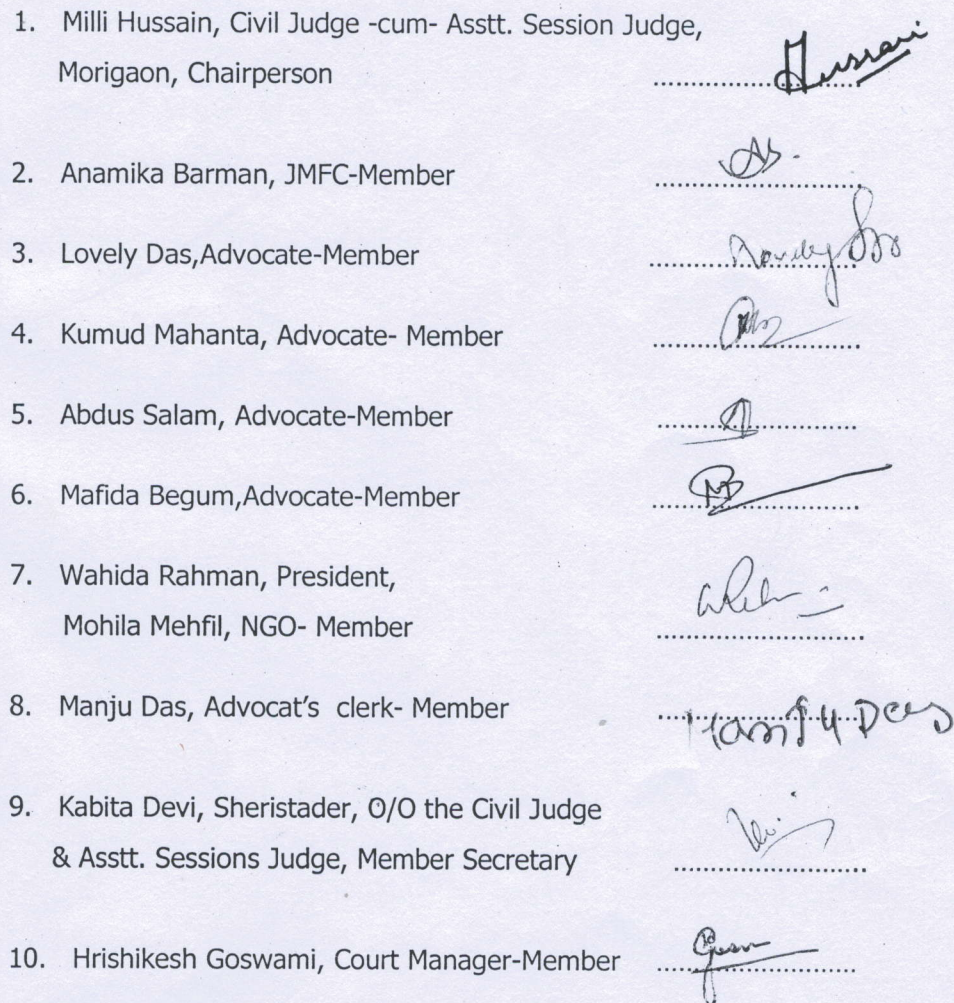 1. Milli Hussain, Civil Judge -cum- Asstt. Session Judge,
Morigaon, Chairperson ........................ Hussain
2. Anamika Barman, JMFC-Member ........................
3. Lovely Das,Advocate-Member ........................
4. Kumud Mahanta, Advocate- Member ........................
5. Abdus Salam, Advocate-Member ........................
6. Mafida Begum,Advocate-Member ........................
7. Wahida Rahman, President,
Mohila Mehfil, NGO- Member ........................
8. Manju Das, Advocat's clerk- Member ........................ Manju Das
9. Kabita Devi, Sheristader, O/O the Civil Judge
& Asstt. Sessions Judge, Member Secretary ........................
10. Hrishikesh Goswami, Court Manager-Member ........................